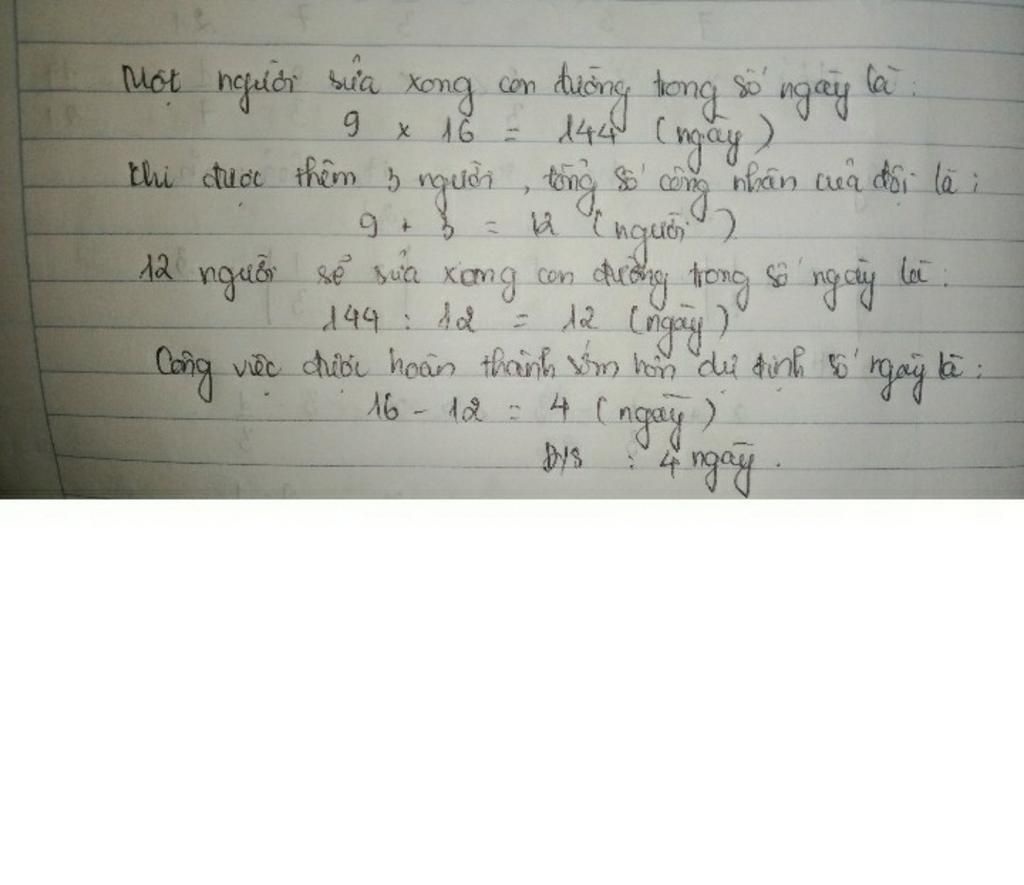 Một người sửa xong con đường trong số ngày là:
9 x 16 = 144 (ngày)
Khi được thêm 3 người, tổng số công nhân của đội là:
9 + 3 = 12 (người)
12 người sẽ sửa xong con đường trong số ngày là:
144 : 12 = 12 (ngày)
Công việc được hoàn thành sớm hơn dự định số ngày là:
16 - 12 = 4 (ngày)
Đ/S : 4 ngày.